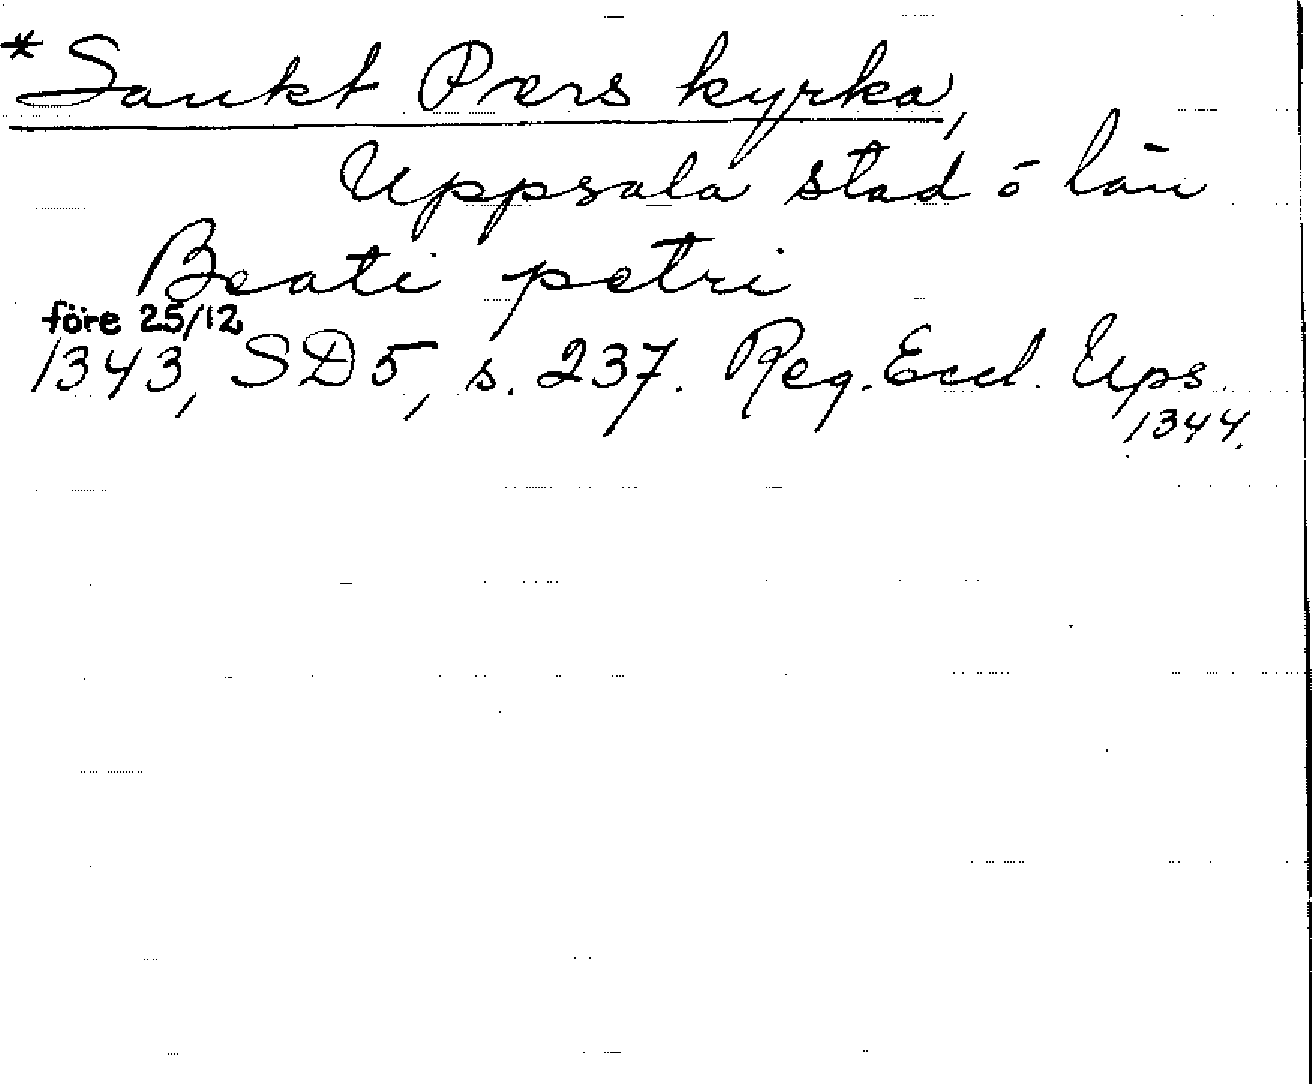 *Sankt Pers kyrka,
Uppsala stad o län
Beati petri
före 25/12
1343, SD5, s. 237. Reg. Eccl. Ups
1344.